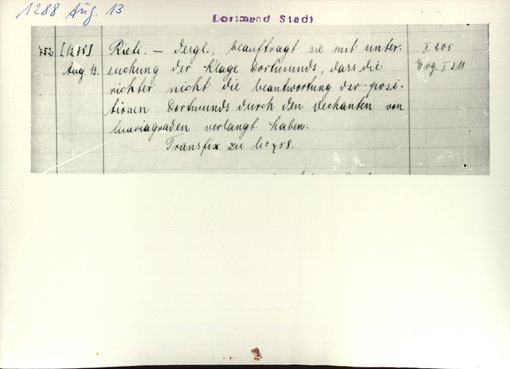 1288 Aug. 13
Dortmund Stadt
752 [1288] Rieti. — Desgl., beauftragt sie mit unter- I 205
Aug 13. suchung der Klage Dortmunds, dass die Erg. I 311
richter nicht die beantwortung der posi-
tionen Dortmunds durch den dechanten von
Mariagraden verlangt haben.
Transfix zu